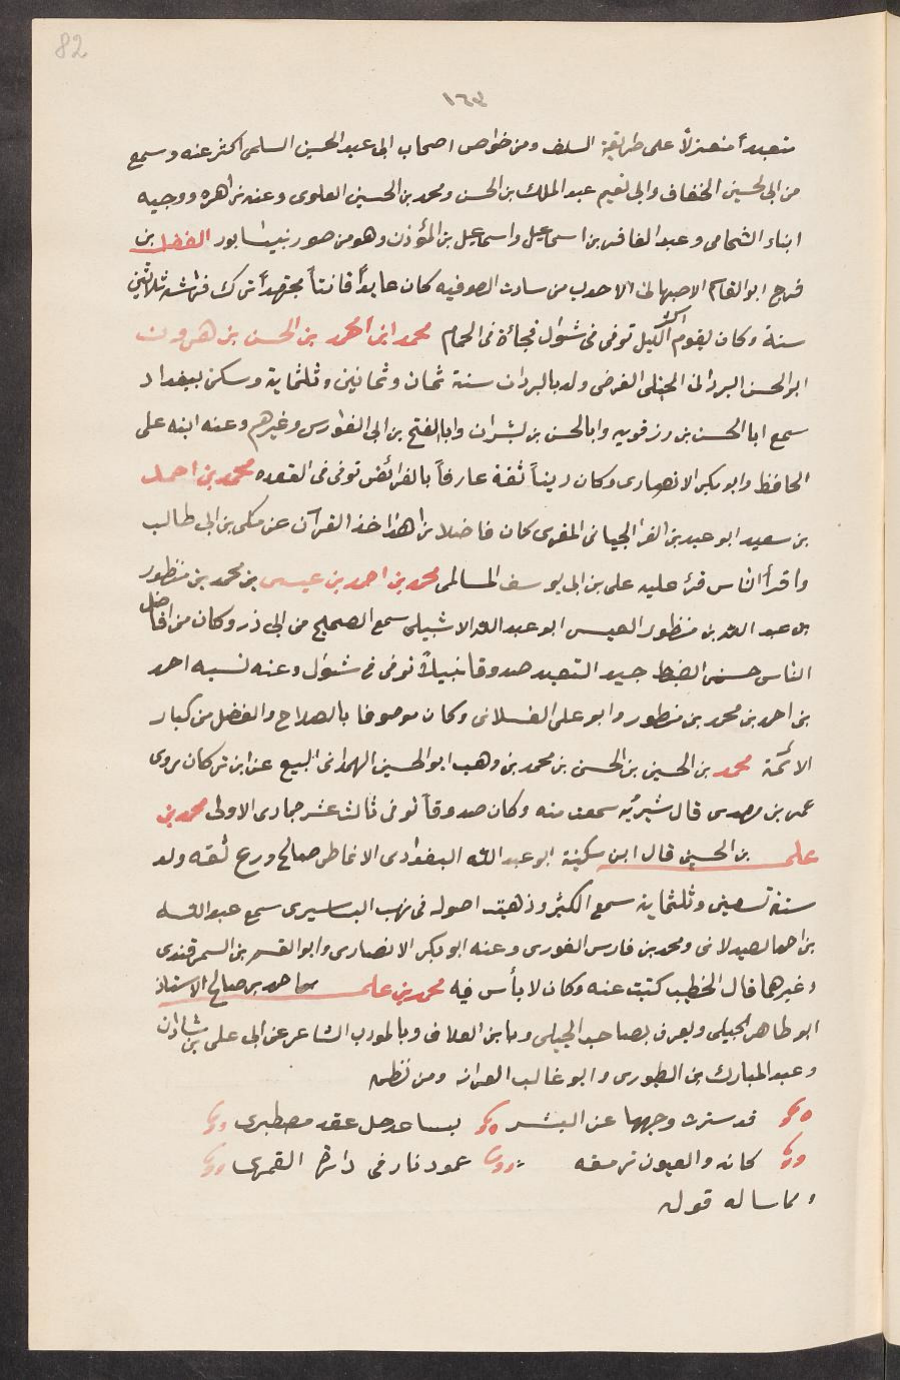 82
١٦٣
متعبداً منعزلاً على طريقة السلف ومن خواص اصحاب ابى عبد الحسين السلمى اكثر عنه وسمع
من ابى الحسين الخفاف وابى نعيم عبد الملك بن الحسن ومحمد بن الحسين العلوى وعنه زاهره ووجيه
ابناء الشحامى وعبد الغافر بن اسماعيل واسماعيل بن المؤذن وهو من صور نيسابور الفضل بن
فرج ابو القاسم الاصبهانى الاحدب من سادت الصوفيه كان عابداً قانتاً مجتهداً ترك فراشه ثلاثين
سنة وكان يقوم اكثر الليل توفى فى شوال فجأة فى الحمام محمد ابن احمد بن الحسن بن هرون
ابو الحسن البردانى الحنبلى الفرضى ولد بالبردان سنة ثمان وثمانين وثلثماية وسكن ببغداد
سمع ابا الحسن بن رزقويه وابا الحسن بن بشران وابا الفتح بن ابى الفوارس وغيرهم وعنه ابنه على
الحافظ وابو بكر الانصارى وكان ديناً ثقة عارفاً بالفرائض توفى فى القعده محمد بن احمد
بن سعيد ابو عبد بن الفرا الجيانى المقرى كان فاضلا زاهدا اخذ القرآن عن مكى بن ابى طالب
واقرأ الناس قرئ عليه على بن ابى يوسف السالمى محمد بن احمد بن عيسى بن محمد بن منظور
بن عبد الله بن منظور العيسى ابو عبد الله الاشبيلى سمع الصحيح من ابى ذر وكان من افاضل
الناس حسن الضبط جيد التعبد صدوقا نبيلاً توفى فى شوال وعنه نسبه احمد
بن احمد بن محمد بن منظور وابو على الغسلانى وكان موصوفا بالصلاح والفضل من كبار
الائمة محمد بن الحسين بن الحسن بن محمد بن وهب ابو الحسين الهمدانى البيع عن ابن تركان يروى
عمر بن مهدى قال شيرويه سمعت منه وكان صدوقاً توفى ثالث عشر جمادى الاولى محمد بن
على بن الحسين قال ابن سكينة ابو عبد الله البغدادى الانماطى صالح ورع ثقه ولد
سنة تسعين وثلثماية سمع الكثير وذهبت اصوله فى نهب البساسيرى سمع عبد الله
بن احمد الصيدلانى ومحمد بن فارس الغورى وعنه ابو بكر الانصارى وابو القسم بن السمرقندى
وغيرهما قال الخطيب كتبت عنه وكان لا بأس فيه محمد بن على احمد بن صالح الاستاذ
ابو طاهر الجبلى ويعرف بصاحب الجبلى وبابن العلاف وبالمودب الشاعر عن ابى على بن شاذان
وعبد المبارك بن الطيورى وابو غالب القزاز ومن نظمه
قد سترت وجهها عن البشر بساعد حل عقد مصطبرى
كانه والعيون ترمقه عمود نار فى دائرة القمر
ومما سا له قوله